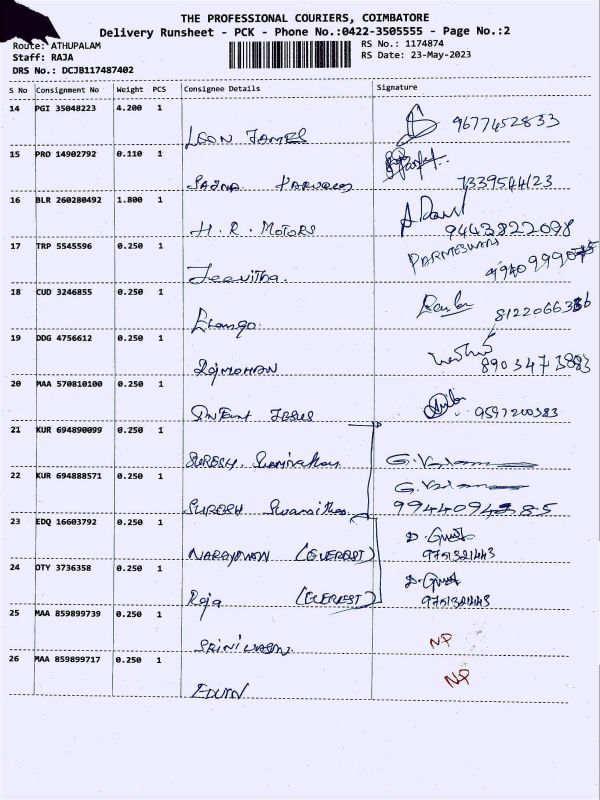 THE PROFESSIONAL COURIERS, COIMBATORE
Delivery Runsheet - PCK - Phone No.:0422-3505555 - Page No.:2
Route: ATHUPALAM
RS No.: 1174874
Staff: RAJA
RS Date: 23-May-2023
DRS No.: DCJB117487402
S No Consignment No Weight PCS Consignee Details Signature
14 PGI 35048223 4.200 1
LEON JAMES 9677452833
15 PRO 14902792 0.110 1
7339544123
16 BLR 260280492 1.800 1
H. R. MOTORS 9443822098
17 TRP 5545596 0.250 1
PARMESWARI
Jeevitha.
18 CUD 3246855 0.250 1
Elango
19 DDG 4756612 0.250 1
RAJMOHAN 8903473883
20 MAA 570810100 0.250 1
INFANT JESUS 9597200383
21 KUR 694890099 0.250 1
SURESH
22 KUR 694888571 0.250 1
SURESH
23 EDQ 16603792 0.250 1
NARAYANAN (EVEREST) 9751321443
24 OTY 3736358 0.250 1
Raja (EVEREST) 9751321443
25 MAA 859899739 0.250 1
SRINIVASAN NP
26 MAA 859899717 0.250 1
EDWIN NP